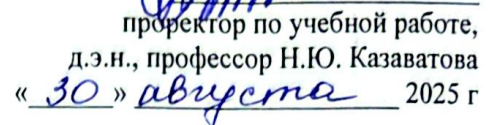 проректор по учебной работе,
д.э.н., профессор Н.Ю. Казаватова
«30» августа 2025 г